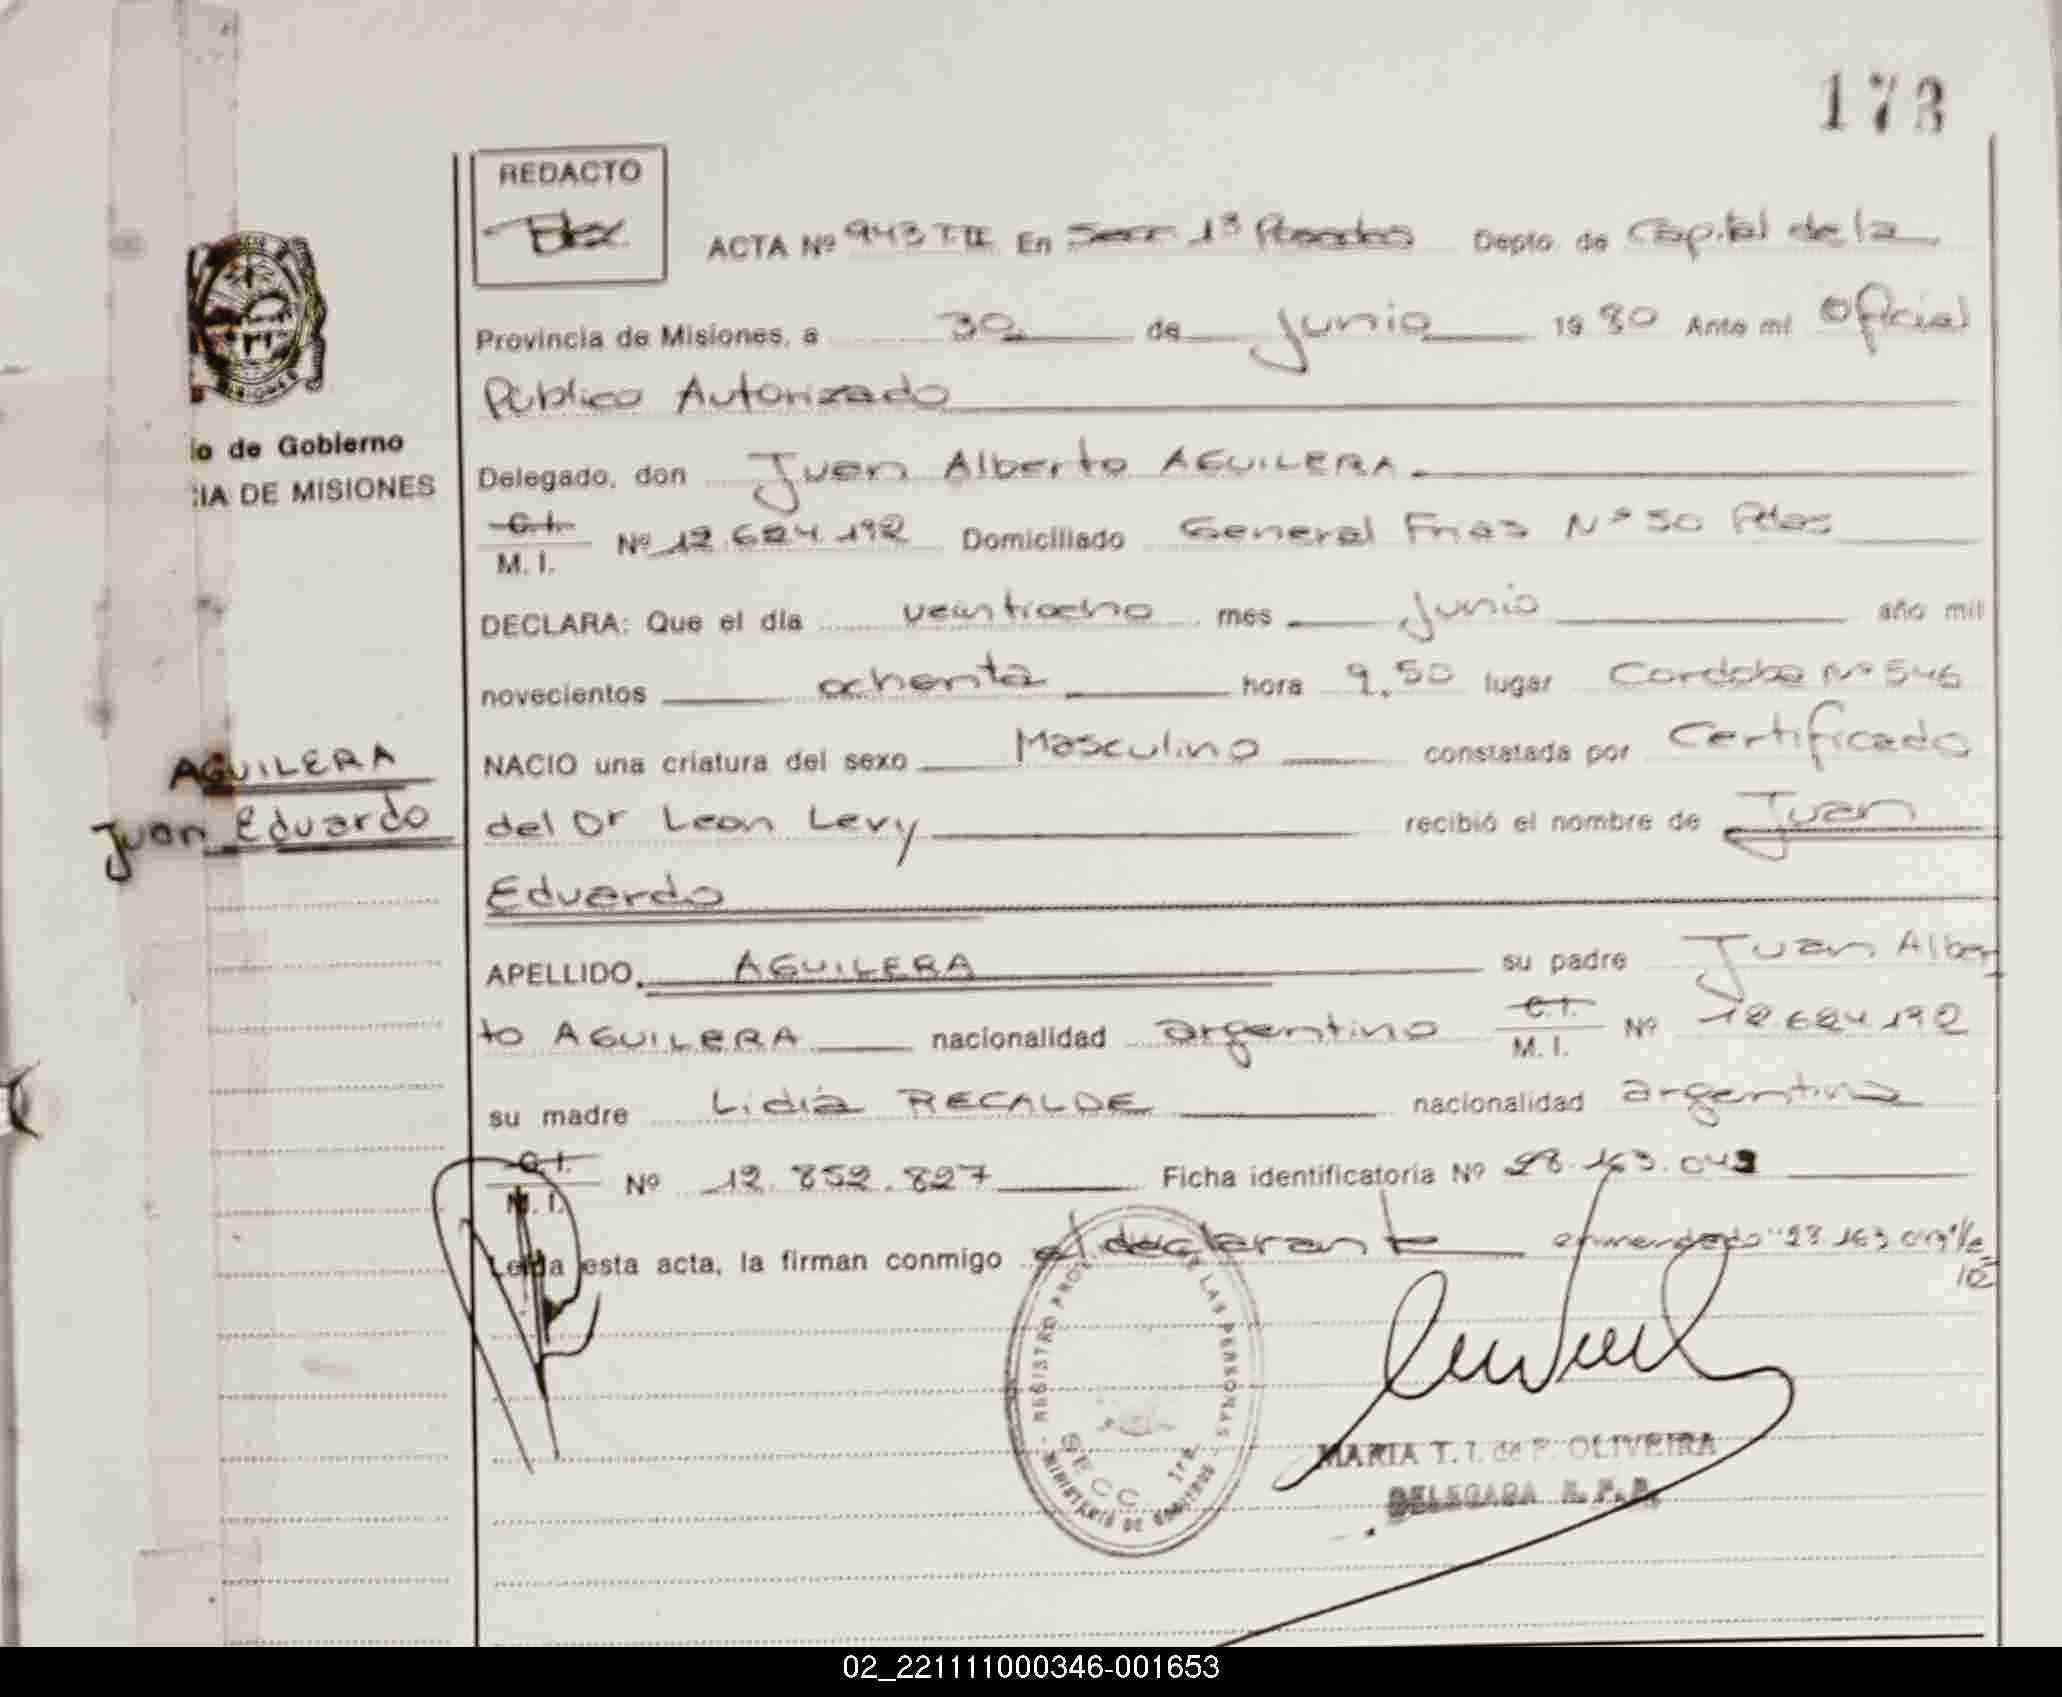 173
REDACTO
ACTA Nº 943 T.II En Secc 1ª Posadas Depto. de Capital de la
Provincia de Misiones, a 30 de Junio 1980 Ante mí Oficial
Público Autorizado
io de Gobierno
CIA DE MISIONES
Delegado, don Juan Alberto AGUILERA
C.I.
M. I. Nº 12.624.192 Domiciliado General Frias Nº 50 Pdas
DECLARA: Que el día veintiocho mes Junio año mil
novecientos ochenta hora 9,50 lugar Cordoba Nº 546
NACIO una criatura del sexo Masculino constatada por Certificado
AGUILERA
Juan Eduardo
del Dr Leon Levy recibió el nombre de Juan
Eduardo
APELLIDO. AGUILERA su padre Juan Alber
to AGUILERA nacionalidad argentino C.I. M. I. Nº 12.624.192
su madre Lidia RECALDE nacionalidad argentina
C.I.
M. I. Nº 12.852.827 Ficha identificatoria Nº 28.163.043
Leída esta acta, la firman conmigo el declarante enmendado "28.163.043" Va
le
REGISTRO PROV. DE LAS PERSONAS
SECC 1ra
MINISTERIO DE GOBIERNO
MARIA T. I. de P. OLIVEIRA
DELEGADA R. P. P.
02_221111000346-001653